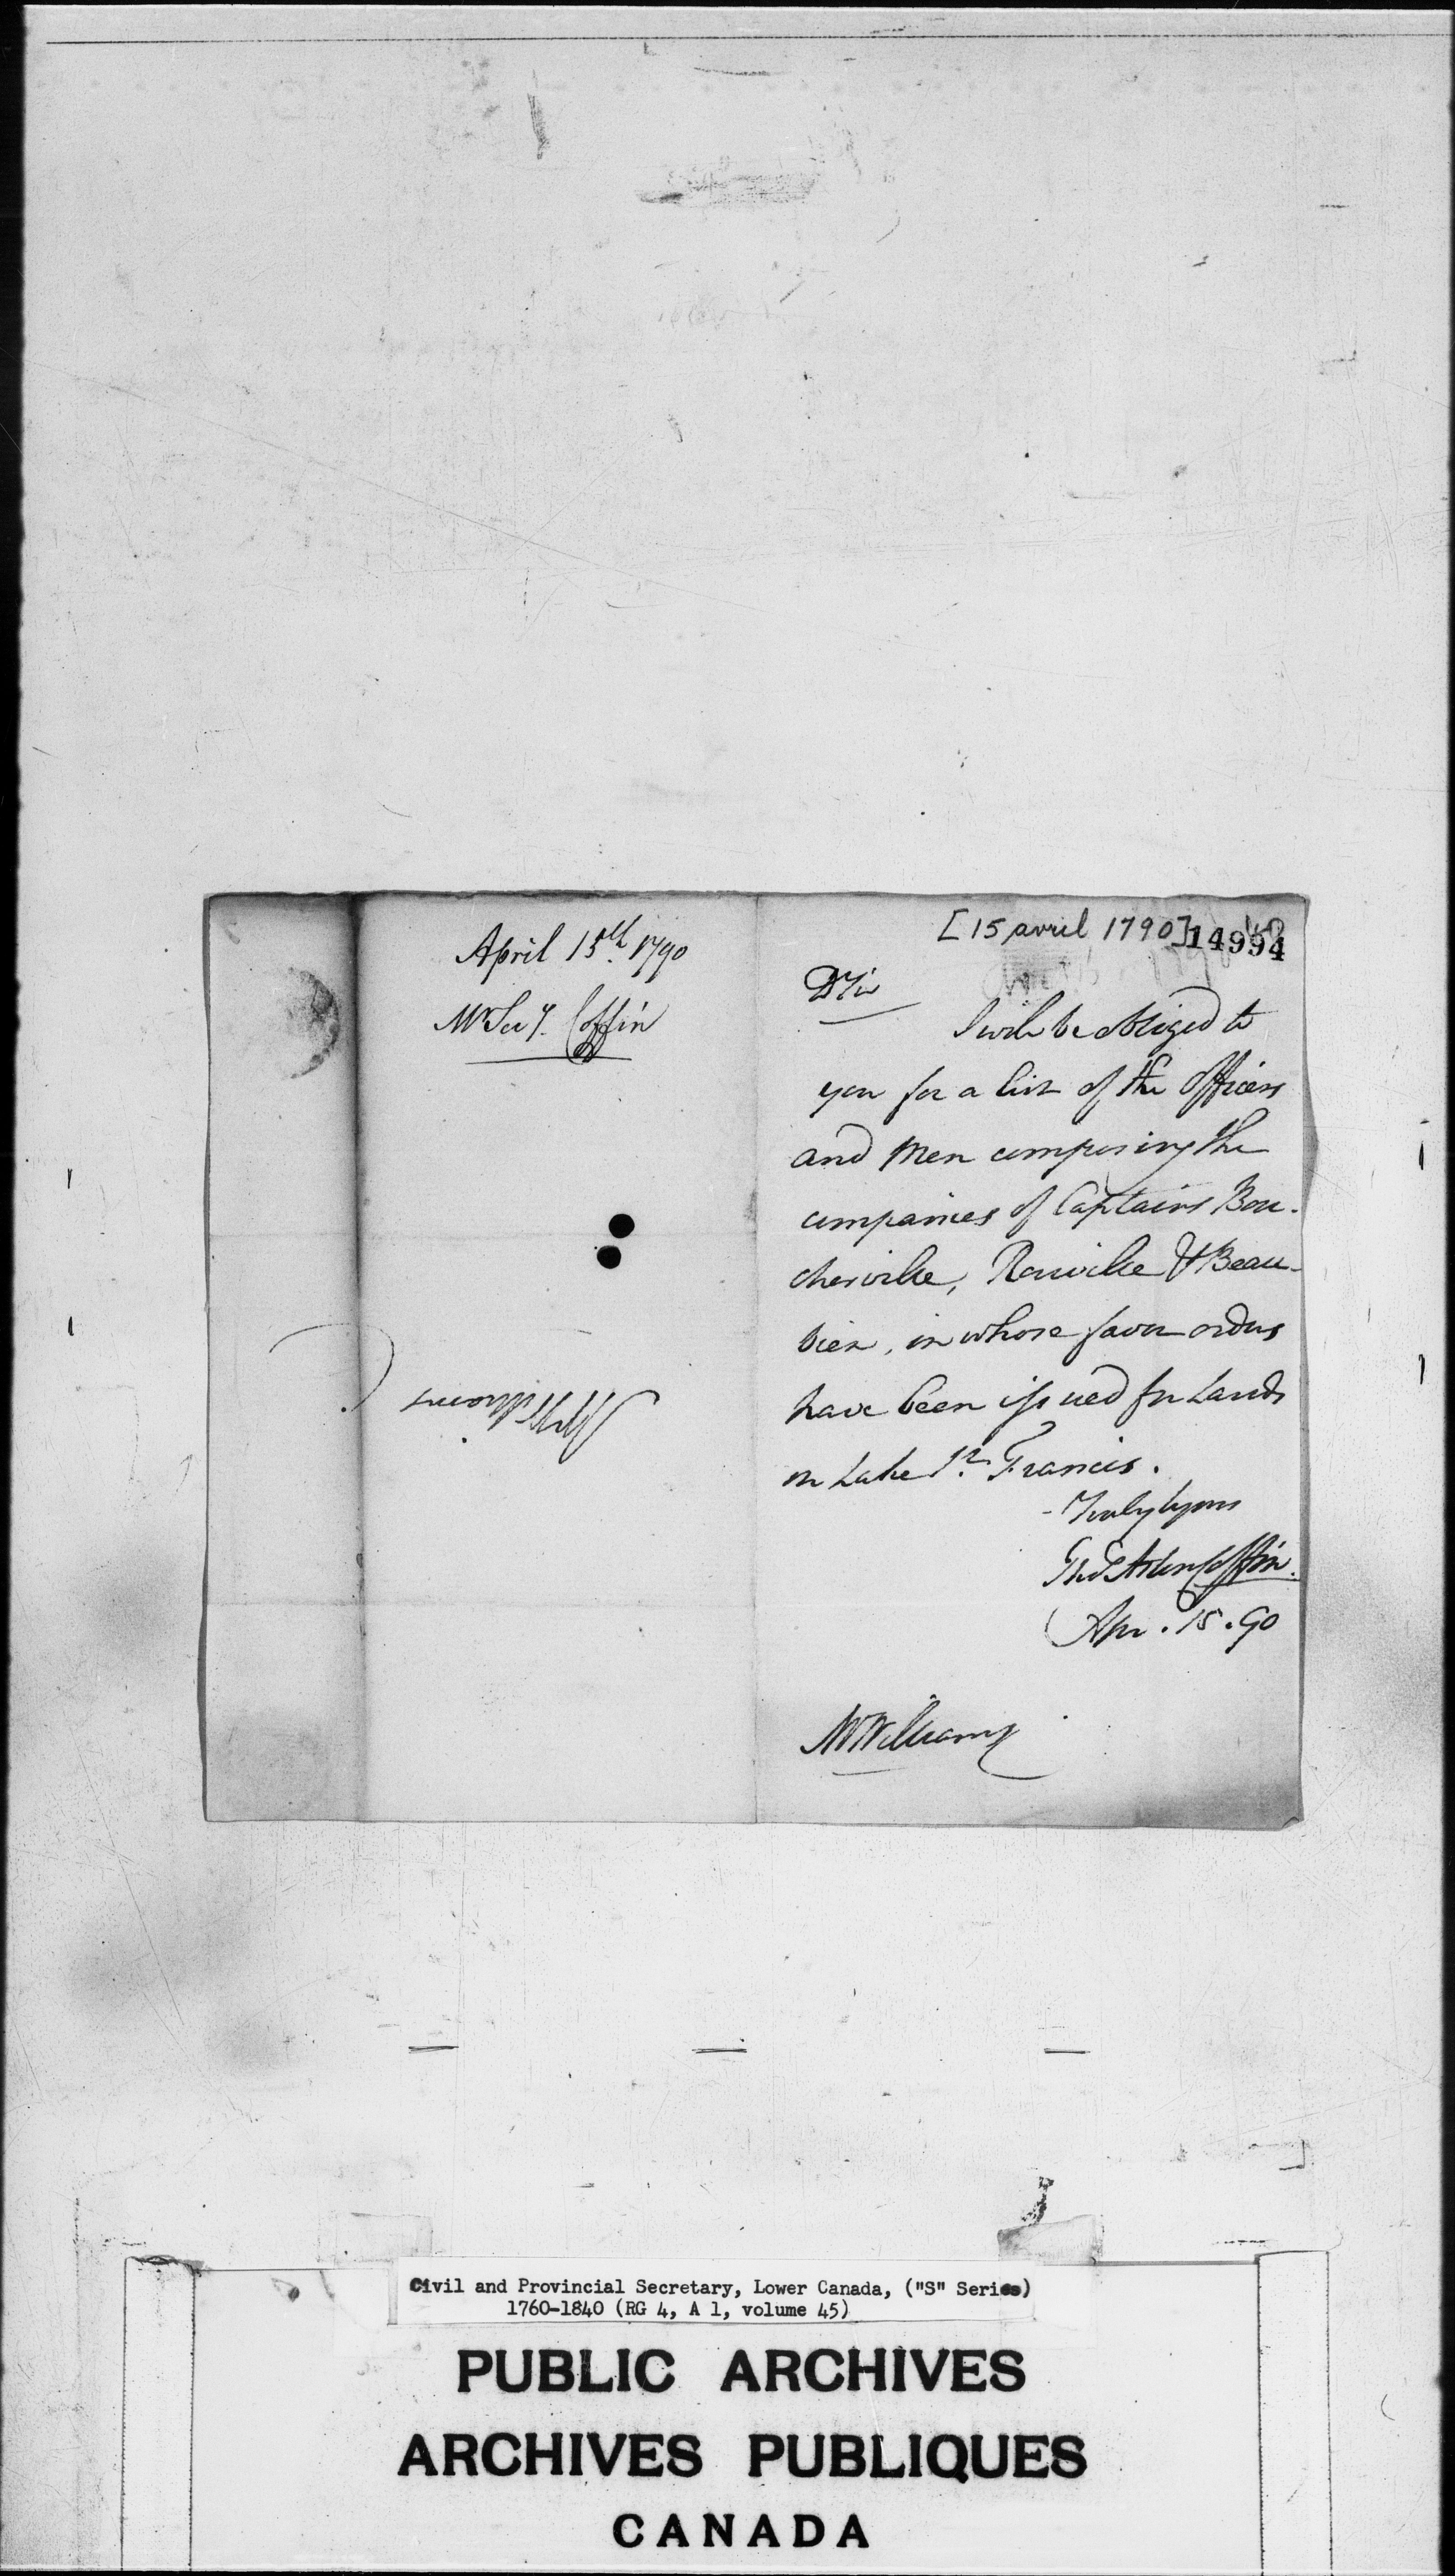 April 15th. 1790
Mr Secy. Coffin
Mr Williams
[15 avril 1790] 14994
Dr Sir
I will be obliged to
you for a list of the Officers
and Men composing the
companies of Captains Bou-
cherville, Rouville & Beau-
bien, in whose favor orders
have been issued for Lands
on Lake St. Francis.
Truly yrs
Thos Aston Coffin.
Apr. 15. 90
Mr Williams
Civil and Provincial Secretary, Lower Canada, ("S" Series)
1760-1840 (RG 4, A 1, volume 45)
PUBLIC ARCHIVES
ARCHIVES PUBLIQUES
CANADA